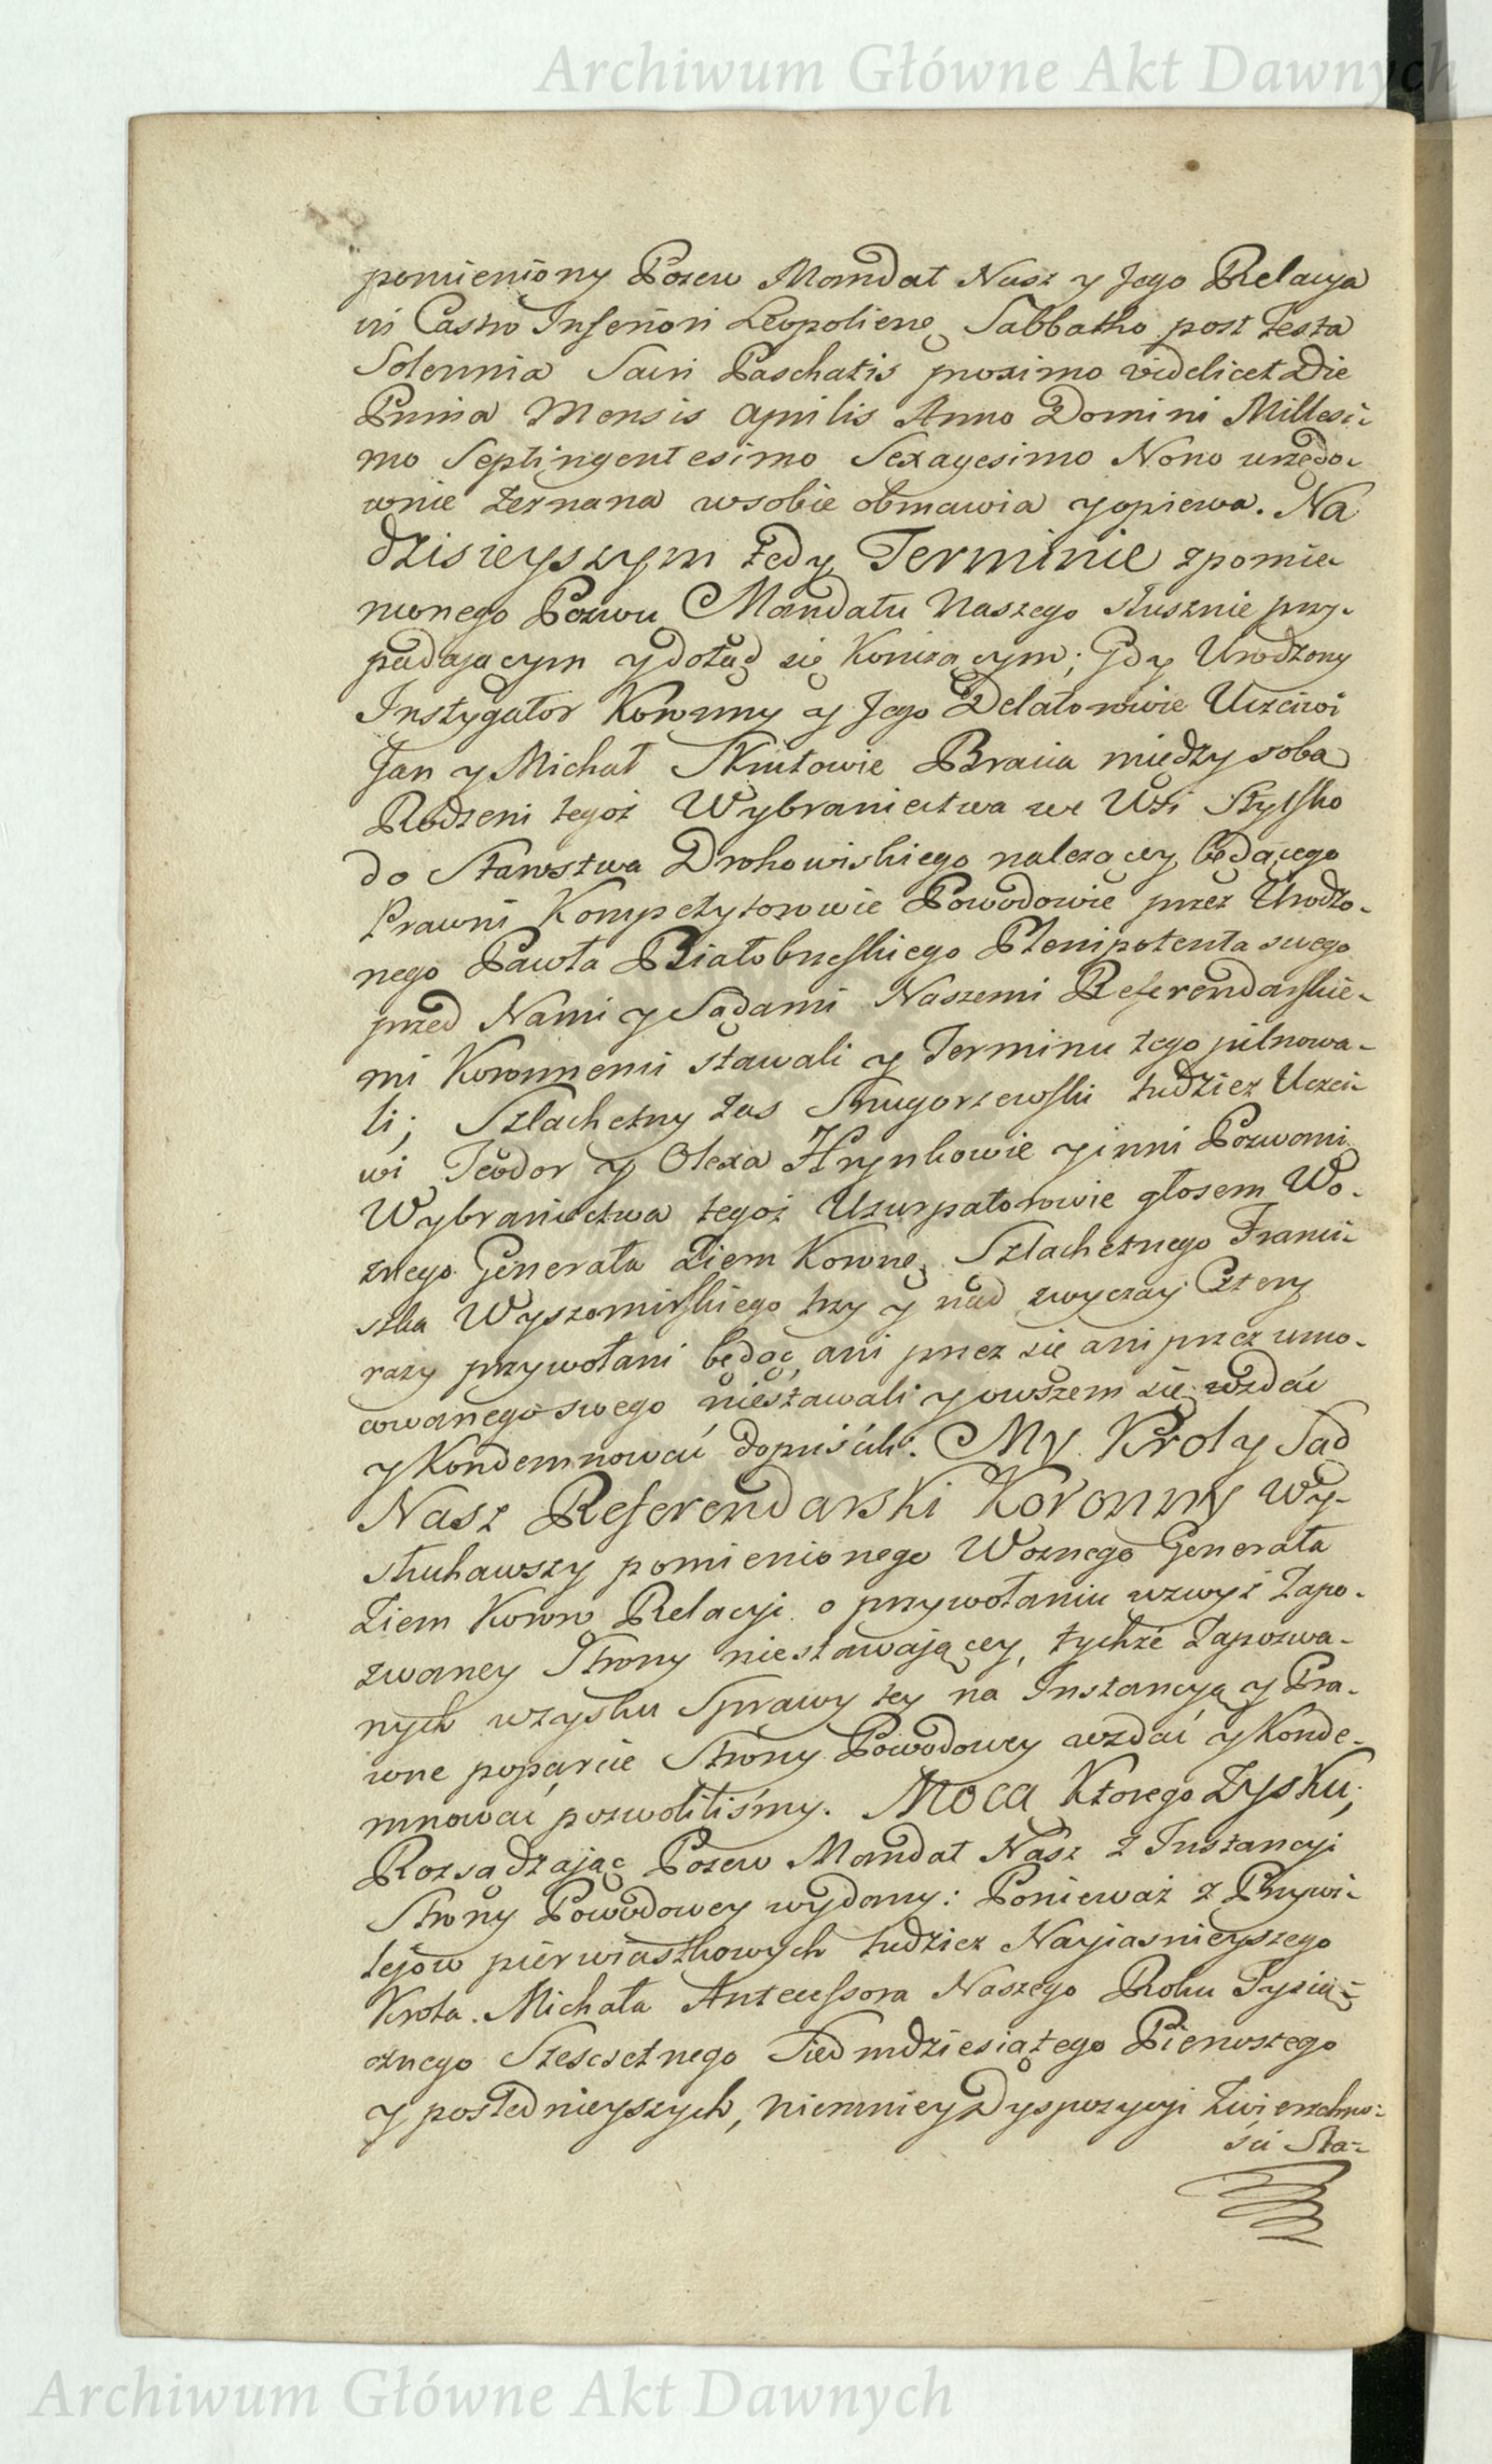 Archiwum Główne Akt Dawnych
pomieniony Pozew Mandat Nasz y Jego Relacya
in Castro Inferiori Leopoliens. Sabbatho post Festa
Solennia Sacri Paschatis proximo videlicet Die
Prima Mensis Aprilis Anno Domini Millesi-
mo Septingentesimo Sexagesimo Nono urzędo-
wnie zeznana wsobie obmawia yopiewa. Na
dzisieyszym tedy Terminie zpomie-
nionego Pozwu Mandatu Naszego słusznie przy-
padającym ydotąd się Konczącym; Gdy Urodzony
Instygator Koronny y Jego Delatorowie Uczciwi
Jan y Michał Skrutowie Bracia między sobą
Rodzeni tegoż Wybraniectwa we Wsi Stylsko
do Starostwa Drohowiskiego należącey będącego
Prawni Kompetytorowie Powodowie przez Urodzo-
nego Pawła Białobrzeskiego Plenipotenta swego
przed Nami y Sądami Naszemi Referendarskie-
mi Koronnemi stawali y Terminu tego pilnowa-
li; Szlachetny zas Strugorzewski tudziez Uczci-
wi Teodor y Olexa Hrynkowie yinni Pozwani
Wybraniectwa tegoż Uzurpatorowie głosem Wo-
znego Generała Ziem Koronn. Szlachetnego Franci-
szka Wyszomirskiego trzy y nad zwyczay Cztery
razy przywołani będąc, ani przez się ani przez umo-
cowanego swego niestawali yowszem się wzdać
y Kondemnować dopuścili. My Krol y Sąd
Nasz Referendarski Koronny Wy-
słuhawszy pomienionego Woznego Generała
Ziem Koron. Relacyi o przywołaniu wzwyż Zapo-
zwaney Strony niestawającey, tychże Zapozwa-
nych wzysku Sprawy tey na Instancyą y Pra-
wne poparcie Strony Powodowey wzdać y Konde-
mnować pozwoliliśmy. Mocą Ktorego Zysku;
Rozsądzając Pozew Mandat Nasz z Instancyi
Strony Powodowey wydany: Ponieważ z Przywi-
lejow pierwiastkowych tudziez Nayiasnieyszego
Krola Michała Antecessora Naszego Roku Tysią-
cznego Szescsetnego Siedmdziesiątego Pierwszego
y poslednieyszych, niemniey Dyspozycyi Zwierzchno-
ści Sta-
Archiwum Główne Akt Dawnych